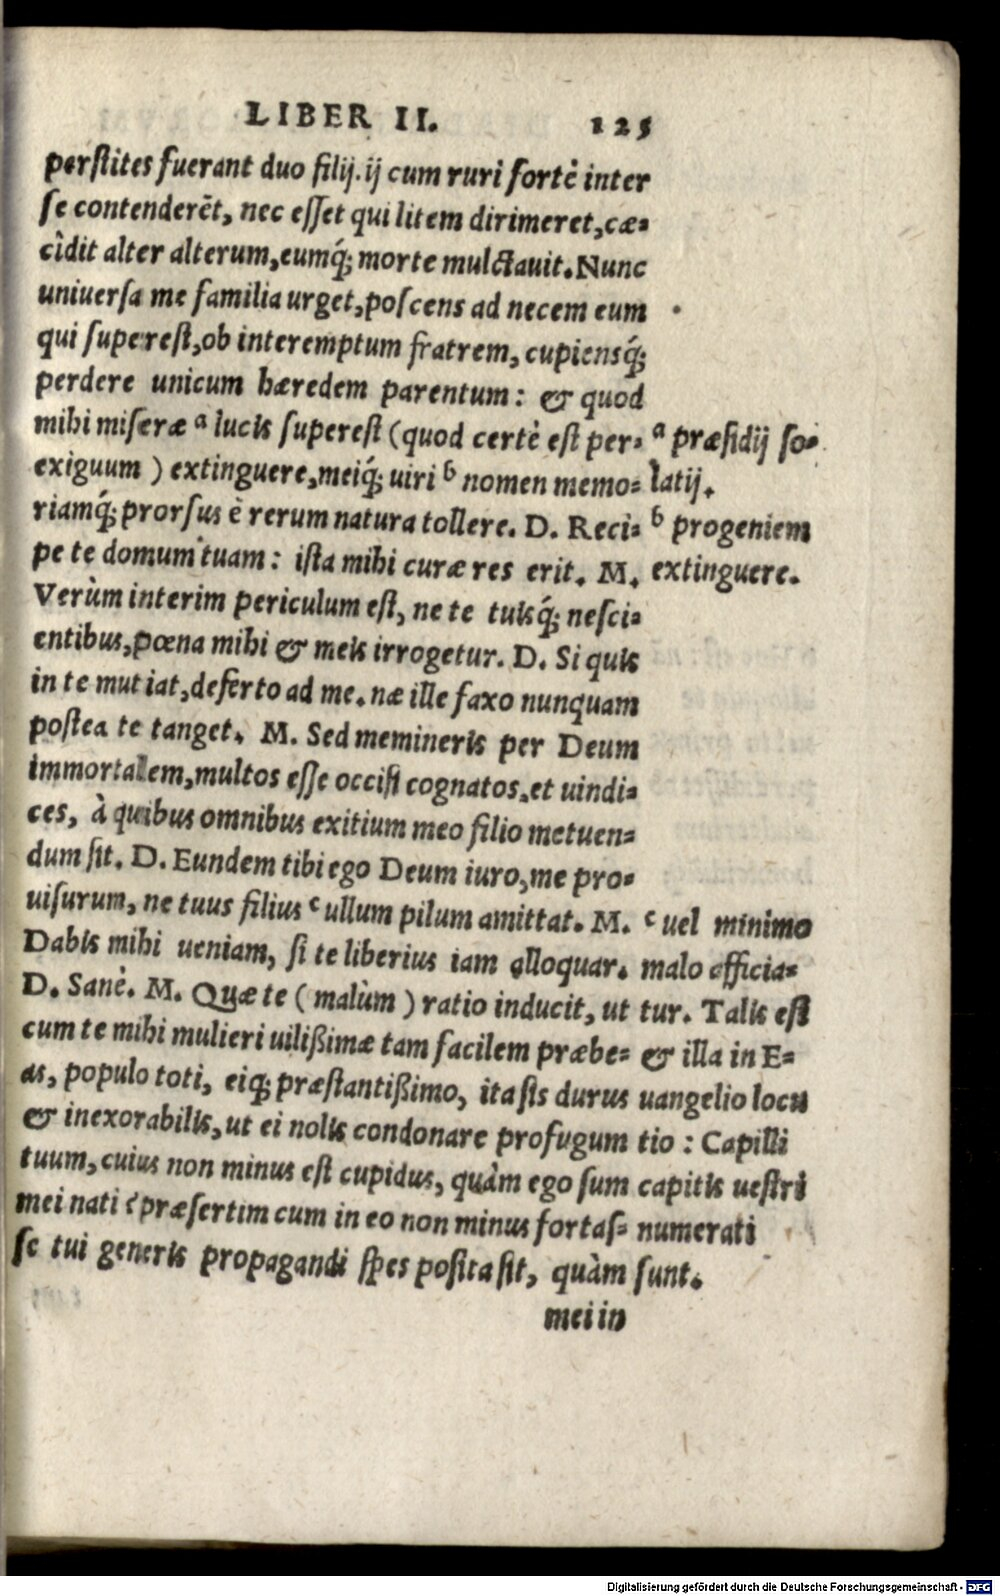 LIBER II. 125
perstites fuerant duo filij. ij cum ruri fortè inter
se contenderēt, nec esset qui litem dirimeret, cæ-
cìdit alter alterum, eumq́; morte mulctauit. Nunc
uniuersa me familia urget, poscens ad necem eum
qui superest, ob interemptum fratrem, cupiensq́;
perdere unicum hæredem parentum: & quod
mihi miseræ a lucis superest (quod certè est per-
exiguum) extinguere, meiq́; uiri b nomen memo-
riamq́; prorsus è rerum natura tollere. D. Reci-
pe te domum tuam: ista mihi curæ res erit. M.
Verùm interim periculum est, ne te tuisq́; nesci-
entibus, pœna mihi & meis irrogetur. D. Si quis
in te mutiat, deferto ad me. næ ille faxo nunquam
postea te tanget. M. Sed memineris per Deum
immortalem, multos esse occisi cognatos, et uindi-
ces, à quibus omnibus exitium meo filio metuen-
dum sit. D. Eundem tibi ego Deum iuro, me pro-
uisurum, ne tuus filius c ullum pilum amittat. M.
Dabis mihi ueniam, si te liberius iam alloquar.
D. Sanè. M. Quæ te (malùm) ratio inducit, ut
cum te mihi mulieri uilißimæ tam facilem præbe-
as, populo toti, eiq; præstantißimo, ita sis durus
& inexorabilis, ut ei nolis condonare profugum
tuum, cuius non minus est cupidus, quàm ego sum
mei nati? præsertim cum in eo non minus fortas-
se tui generis propagandi spes posita sit, quàm
mei in
a præsidij so-
latij.
b progeniem
extinguere.
c uel minimo
malo afficia-
tur. Talis est
& illa in E-
uangelio locu
tio: Capilli
capitis uestri
numerati
sunt.
Digitalisierung gefördert durch die Deutsche Forschungsgemeinschaft - DFG